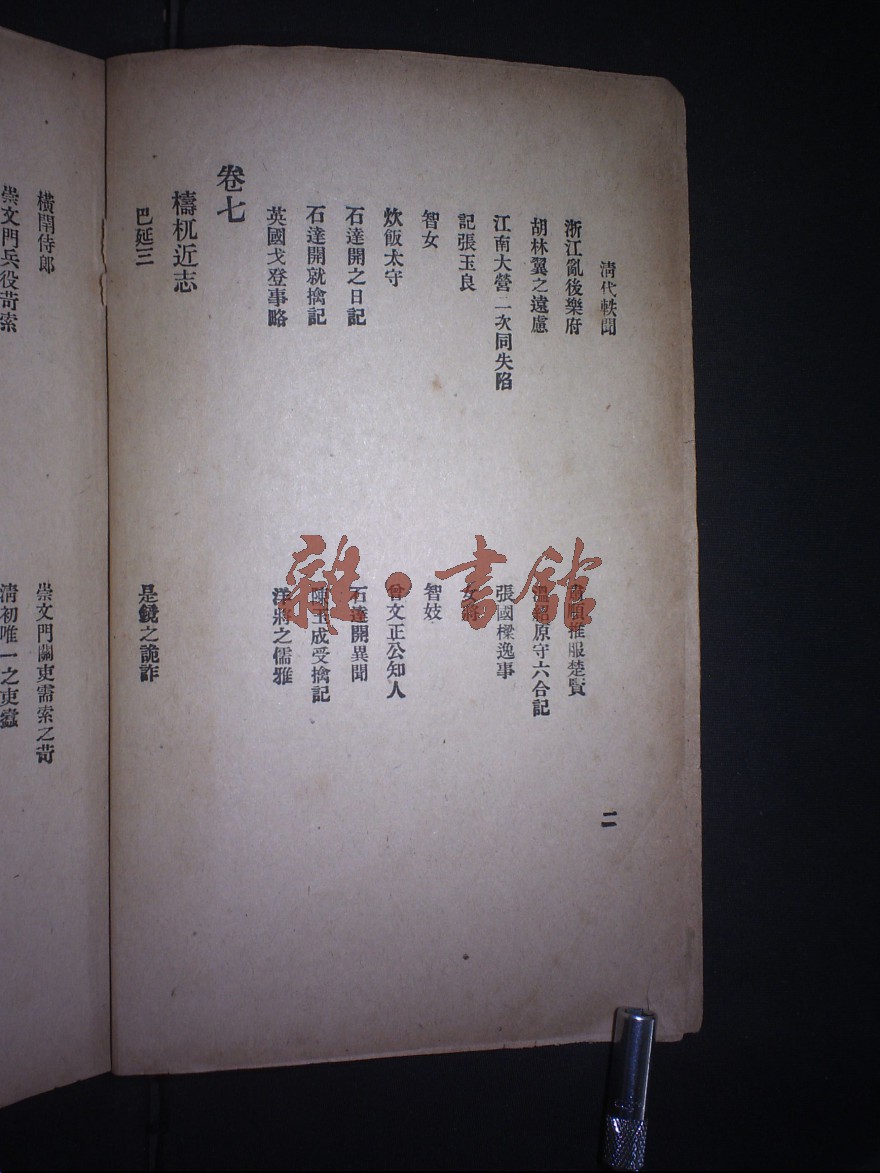 清代軼聞
二
浙江亂後樂府
肅順推服楚賢
胡林翼之遠慮
溫紹原守六合記
江南大營二次同失陷
張國樑逸事
記張玉良
女將
智女
智妓
炊飯太守
曾文正公知人
石達開之日記
石達開異聞
石達開就擒記
陳玉成受擒記
英國戈登事略
洋將之儒雅
卷七
檮杌近志
巴延三
是鏡之詭詐
橫閈侍郎
崇文門關吏需索之苛
崇文門兵役苛索
清初唯一之吏蠹
雜·書館